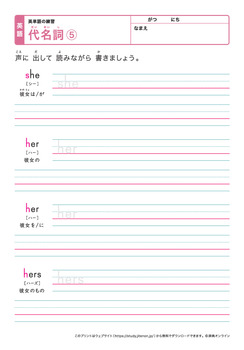 英語
英単語の練習
代名詞 ⑤
がつ にち
なまえ
声に 出して 読みながら 書きましょう。
she she
[シー]
彼女は/が
her her
[ハー]
彼女の
her her
[ハー]
彼女を/に
hers hers
[ハーズ]
彼女のもの
このプリントはウェブサイト(https://study.jiteran.jp/)から無料でダウンロードできます。